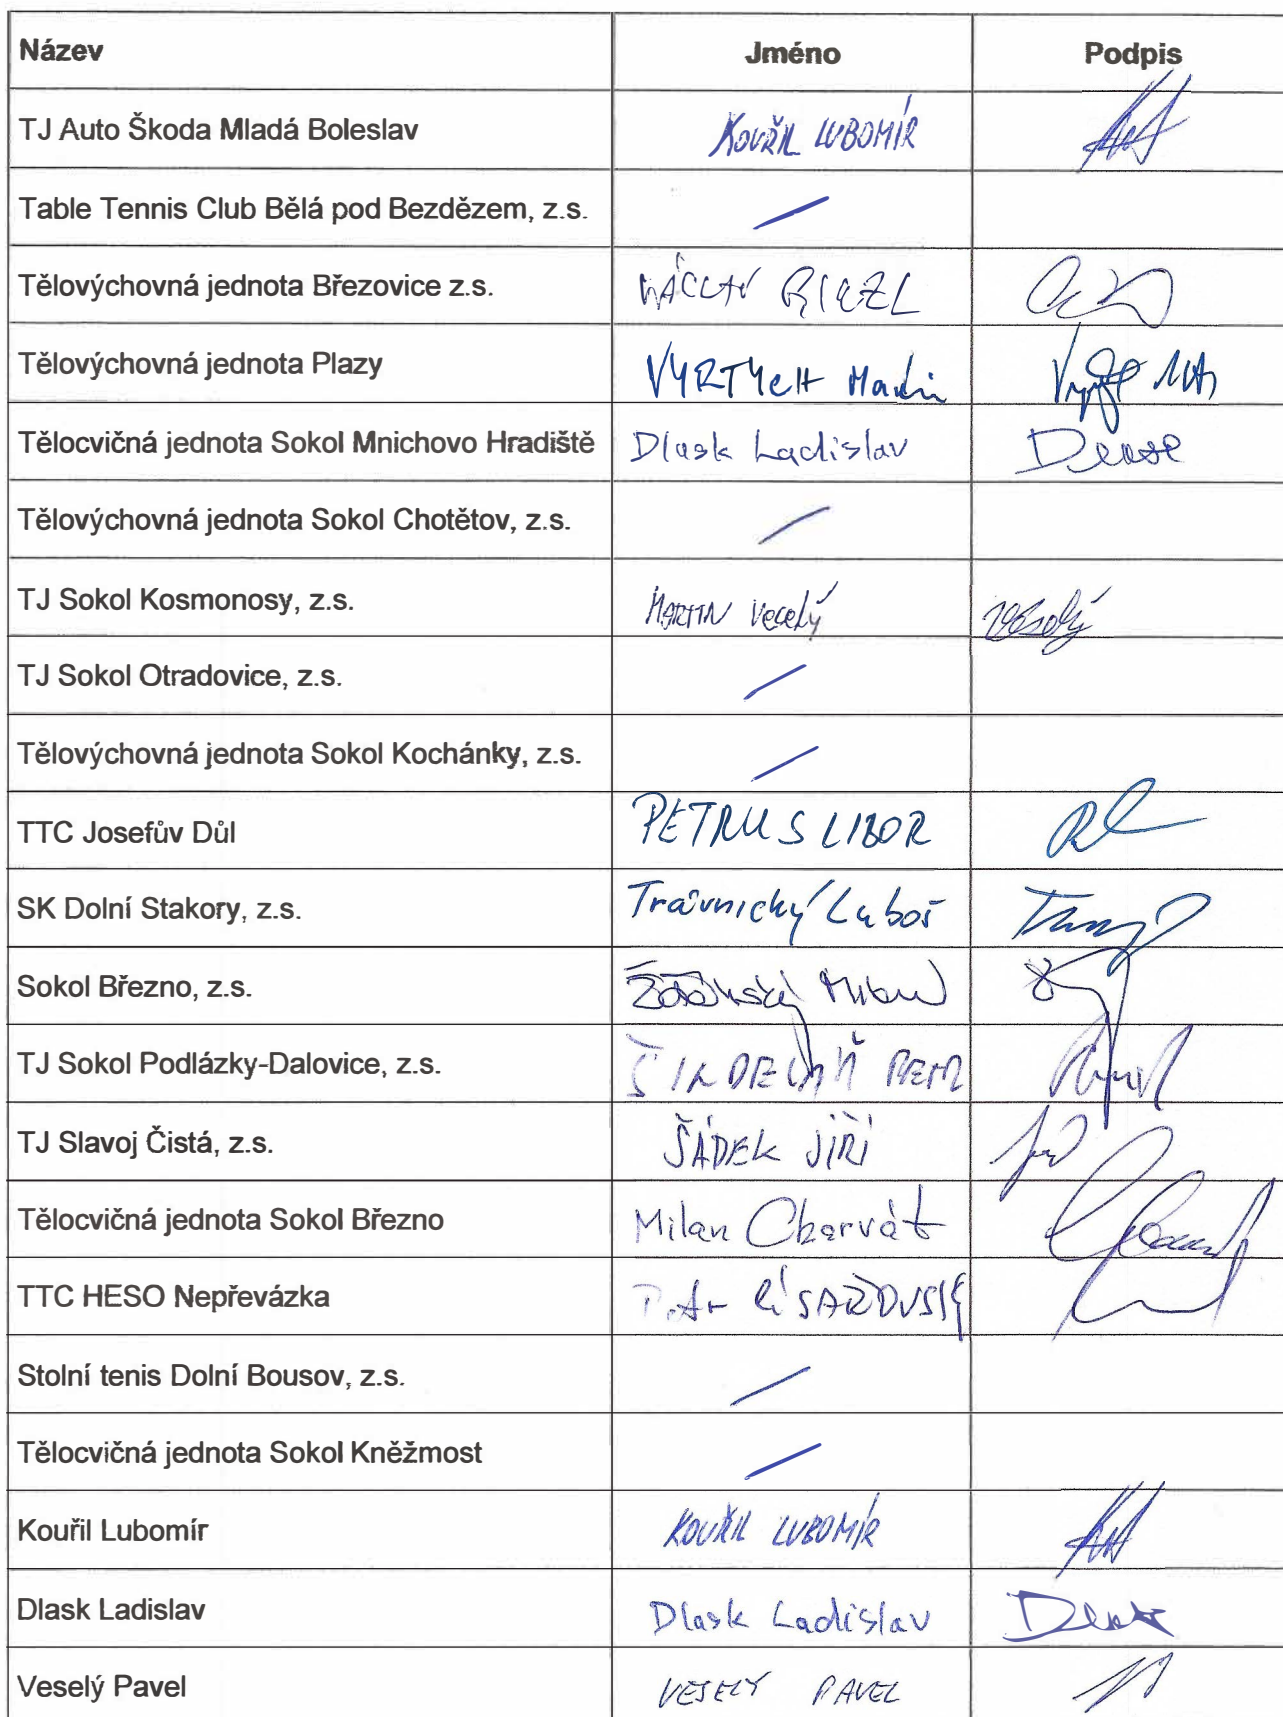 Název Jméno Podpis
TJ Auto Škoda Mladá Boleslav KOUŘIL LUBOMÍR
Table Tennis Club Bělá pod Bezdězem, z.s. —
Tělovýchovná jednota Březovice z.s. VÁCLAV
Tělovýchovná jednota Plazy VYRTYCH Martin
Tělocvičná jednota Sokol Mnichovo Hradiště Dlask Ladislav
Tělovýchovná jednota Sokol Chotětov, z.s. —
TJ Sokol Kosmonosy, z.s. MARTIN Veselý Veselý
TJ Sokol Otradovice, z.s. —
Tělovýchovná jednota Sokol Kochánky, z.s. —
TTC Josefův Důl PETRUS LIBOR
SK Dolní Stakory, z.s. Trávnický Luboš
Sokol Březno, z.s. Milan
TJ Sokol Podlázky-Dalovice, z.s. PETR
TJ Slavoj Čistá, z.s. ŠÁDEK JIŘÍ
Tělocvičná jednota Sokol Březno Milan Charvát
TTC HESO Nepřevázka Petr
Stolní tenis Dolní Bousov, z.s. —
Tělocvičná jednota Sokol Kněžmost —
Kouřil Lubomír KOUŘIL LUBOMÍR
Dlask Ladislav Dlask Ladislav
Veselý Pavel VESELÝ PAVEL